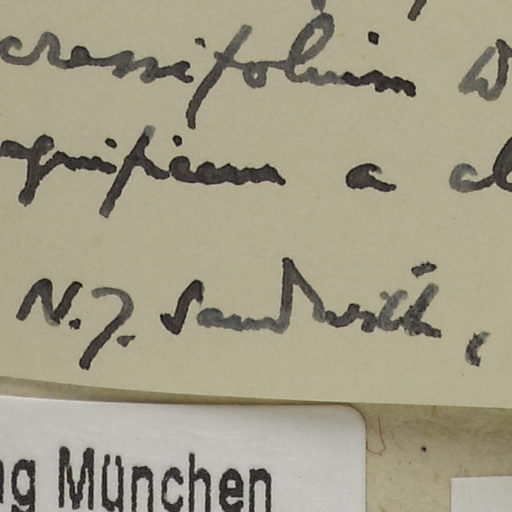 crassifolium
magnificum a
N. J. Sandwith,
ng München